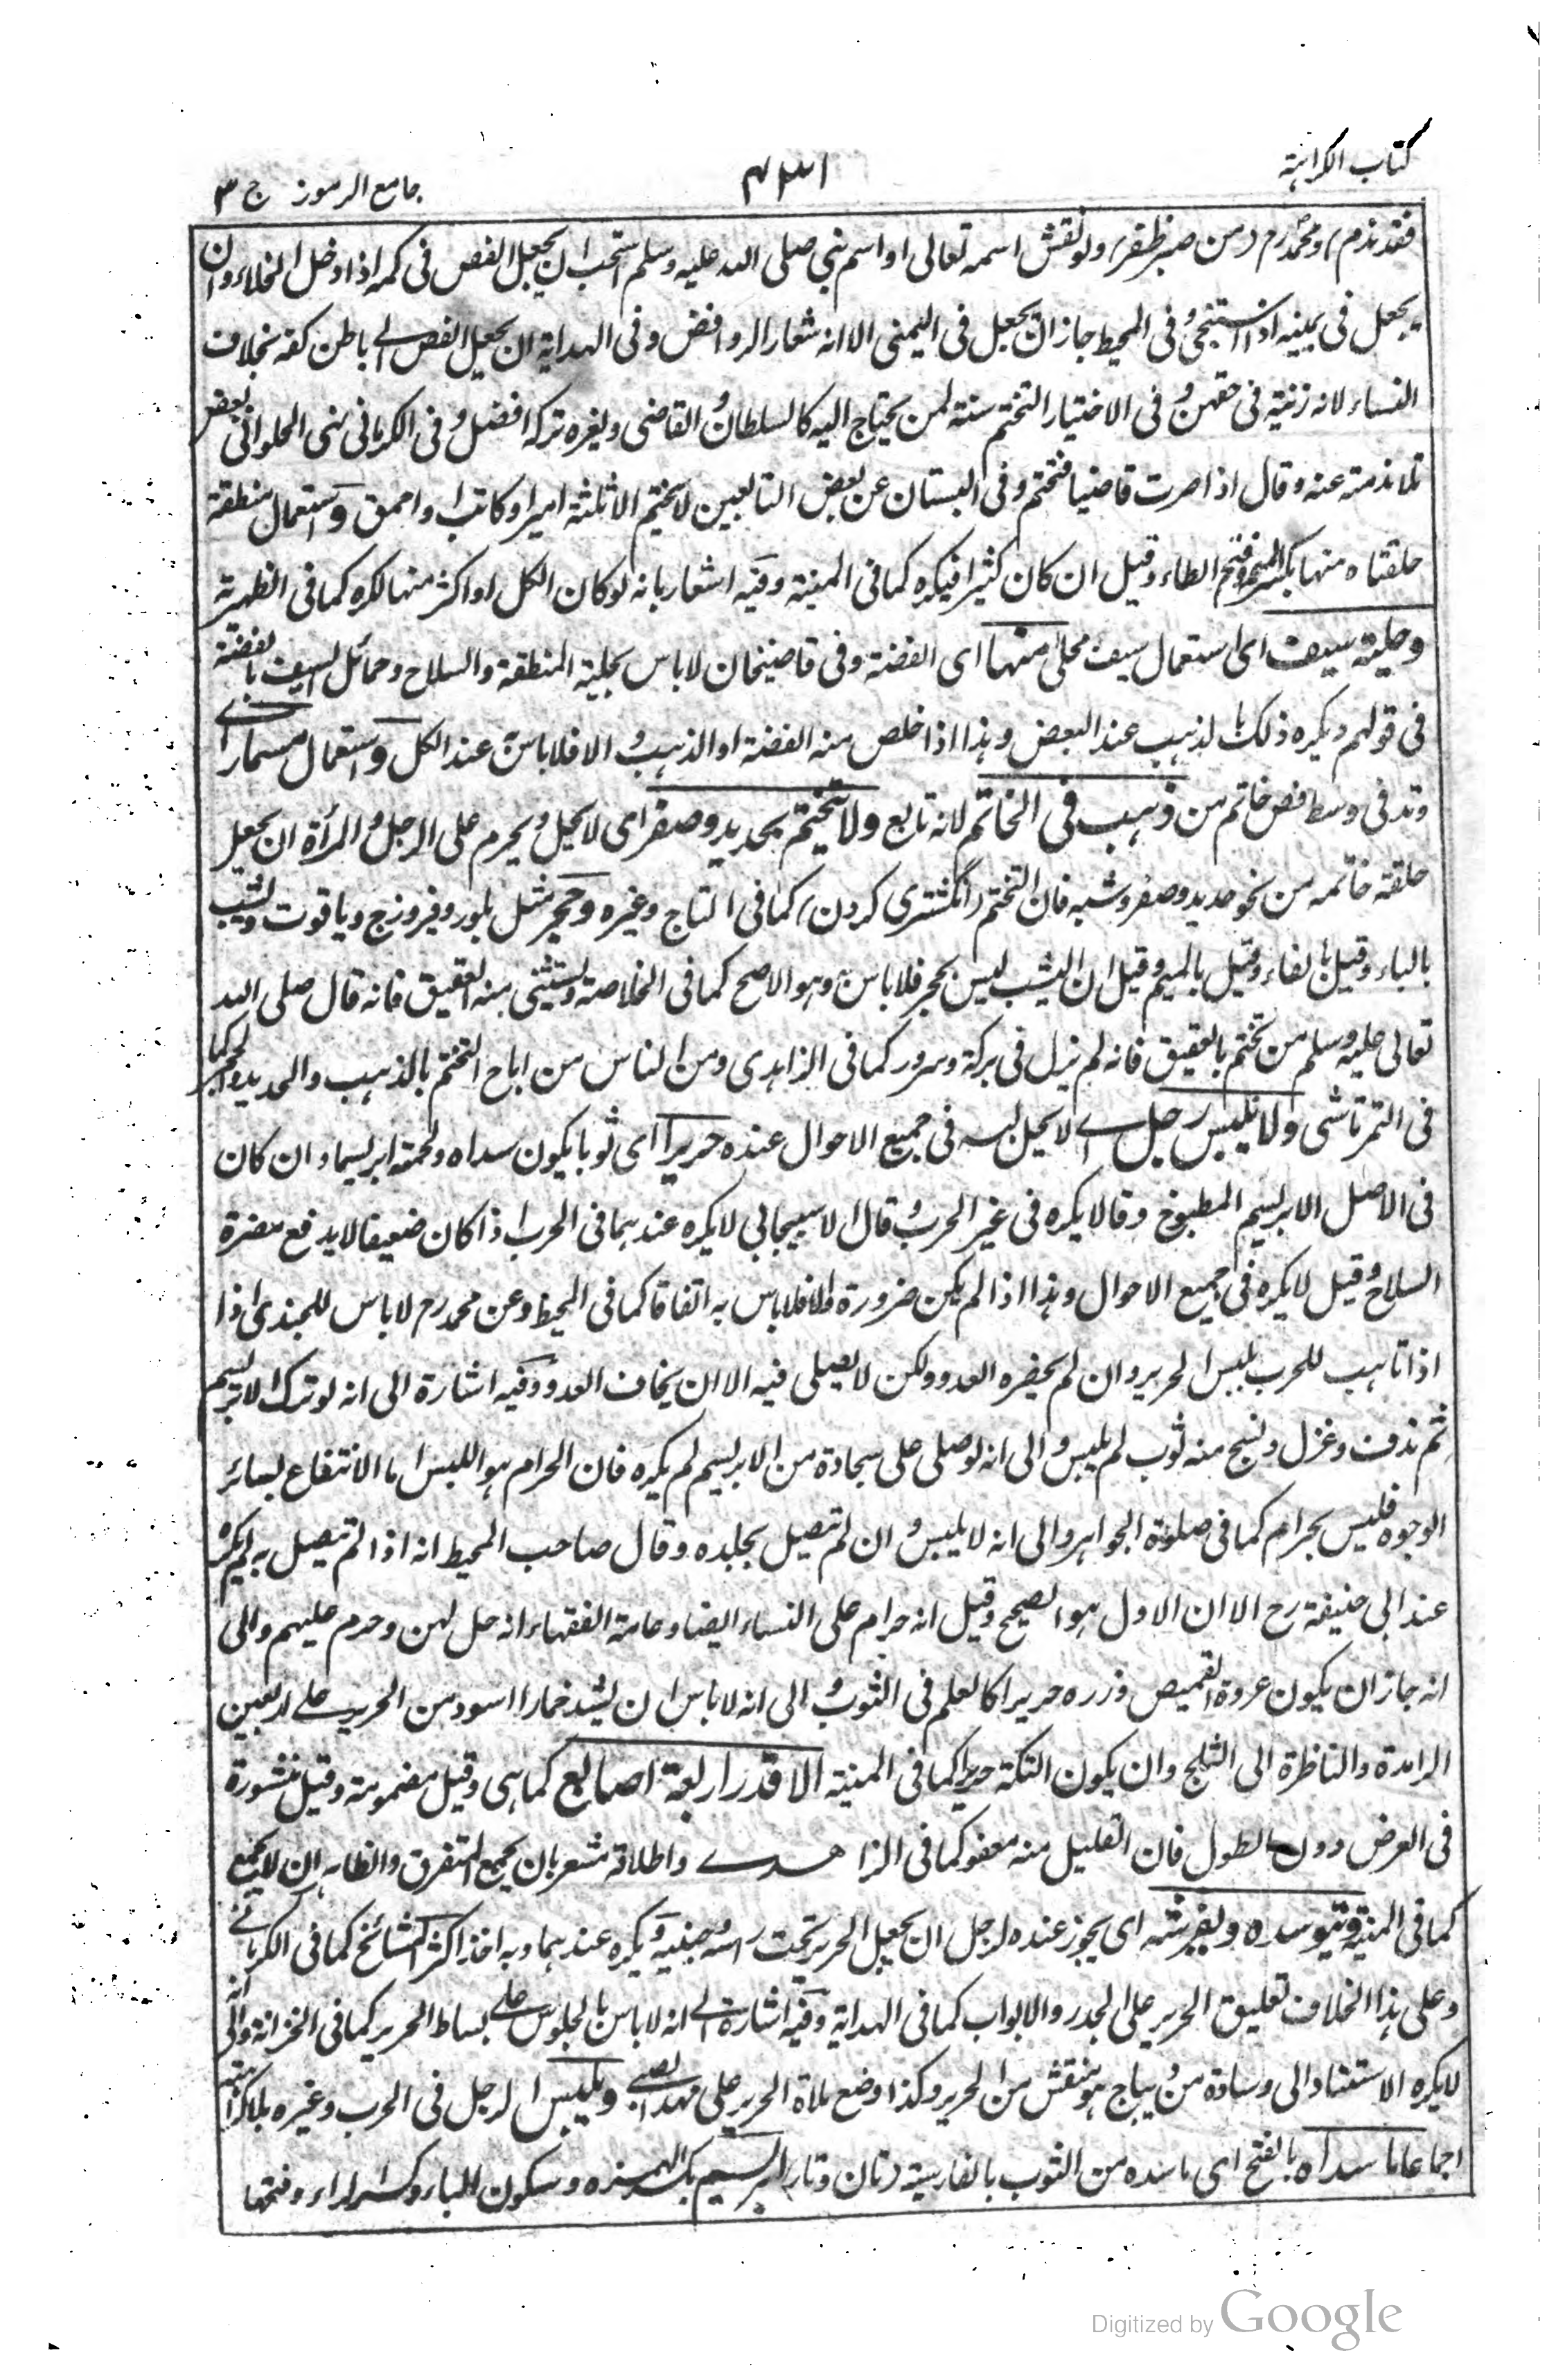 كتاب الكراهة
جامع الرموز ج ٣
فقد ندم) ومحمد رح (من صبر ظفر) ولو نقش اسمه تعالى او اسم نبي صلى الله عليه وسلم استحب ان يجعل الفص فى كمه اذا دخل الخلاء وان
يجعل فى يمينه اذا استنجى وفى المحيط جاز ان يجعل فى اليمنى الا انه شعار الروافض وفى الهداية ان يجعل الفص الى باطن كفه بخلاف
النساء لانه زينة فى حقهن وفى الاختيار التختم سنة لمن يحتاج اليه كالسلطان والقاضى ولغيره تركه افضل وفى الكرمانى نهى الحلوائى بعض
تلامذته عنه وقال اذا صرت قاضيا فتختم وفى البستان عن بعض التابعين لا يختم الا ثلثة امير او كاتب او احمق واستعمال منطقة
حلقتاه منها بكسر الميم وفتح الطاء وقيل ان كان كثيرا فيكره كما فى المنية وفيه اشعار بانه لو كان الكل او اكثر منها لكره كما فى الظهيرية
وحلية سيف اى استعمال سيف محلى منها اى الفضة وفى قاضيخان لا باس بحلية المنطقة والسلاح وحمائل السيف بالفضة
فى قولهم ويكره ذلك بالذهب عند البعض وهذا اذا خلص منه الفضة او الذهب والا فلا باس به عند الكل واستعمال مسمار اى
وتد فى وسط فص خاتم من ذهب فى الخاتم لانه تابع ولا يتختم بحديد وصفر اى لا يحل ويحرم على الرجل والمرأة ان يجعل
حلقة خاتمه من نحو حديد وصفر وشبه فان التختم (انگشترى كردن) كما فى التاج وغيره وحجر مثل بلور وفيروزج وياقوت ويشب
بالباء وقيل بالفاء وقيل بالميم وقيل ان اليشب ليس بحجر فلا باس به وهو الاصح كما فى الخلاصة ويستثنى منه العقيق فانه قال صلى الله
تعالى عليه وسلم من تختم بالعقيق فانه لم يزل فى بركة وسرور كما فى الزاهدى ومن الناس من اباح التختم بالذهب والحديد والحجر كما
فى التمرتاشى ولا يلبس رجل اى لا يحل لبسه فى جميع الاحوال عنده حريرا اى ثوبا يكون سداه ولحمته ابريسما وان كان
فى الاصل الابريسم المطبوخ وقالا يكره فى غير الحرب وقال الاسبيجابى لا يكره عندهما فى الحرب اذا كان ضعيفا لا يدفع مضرة
السلاح وقيل لا يكره فى جميع الاحوال وهذا اذا لم يكن ضرورة والا فلا باس به اتفاقا كما فى المحيط وعن محمد رح لا باس للجندى اذا
اذا تاهب للحرب بلبس الحرير وان لم يحضره العدو ولكن لا يصلى فيه الا ان يخاف العدو وفيه اشارة الى انه لو ترك الابريسم
ثم ندف وغزل ونسج منه ثوب لم يلبس والى انه لو صلى على سجادة من الابريسم لم يكره فان الحرام هو اللبس اما الانتفاع بسائر
الوجوه فليس بحرام كما فى صلوة الجواهر والى انه لا يلبس وان لم يتصل بجلده وقال صاحب المحيط انه اذا لم يتصل به لم يكره
عند ابى حنيفة رح الا ان الاول هو الصحيح وقيل انه حرام على النساء ايضا وعامة الفقهاء انه حل لهن وحرم عليهم والى
انه جاز ان يكون عروة القميص وزره حريرا كالعلم فى الثوب والى انه لا باس ان يشد خمارا اسود من الحرير على العين
الرامدة والناظرة الى الثلج وان يكون التكة حريرا كما فى المنية الا قدر اربعة اصابع كما هى وقيل مضمومة وقيل منشورة
فى العرض دون الطول فان القليل منه معفو كما فى الزاهدى واطلاقه مشعر بان يجمع المتفرق والظاهر ان لا يجمع
كما فى المنية ويتوسده ويفترشه اى يجوز عنده لرجل ان يجعل الحرير تحت راسه وجنبيه ويكره عندهما وبه اخذ اكثر المشائخ كما فى الكرمانى
وعلى هذا الخلاف تعليق الحرير على الجدر والابواب كما فى الهداية وفيه اشارة الى انه لا باس بالجلوس على بساط الحرير كما فى الخزانة والى انه
لا يكره الاستناد الى وسادة من ديباج هو منقش من الحرير وكذا وضع ملاة الحرير على مهد الصبى ويلبس الرجل فى الحرب وغيره بلا كراهة
اجماعا ما سداه بالفتح اى ما سده من الثوب بالفارسية (تان وتار) ابريسم بكسر الهمزة وسكون الباء وكسر الراء وفتحها
Digitized by Google